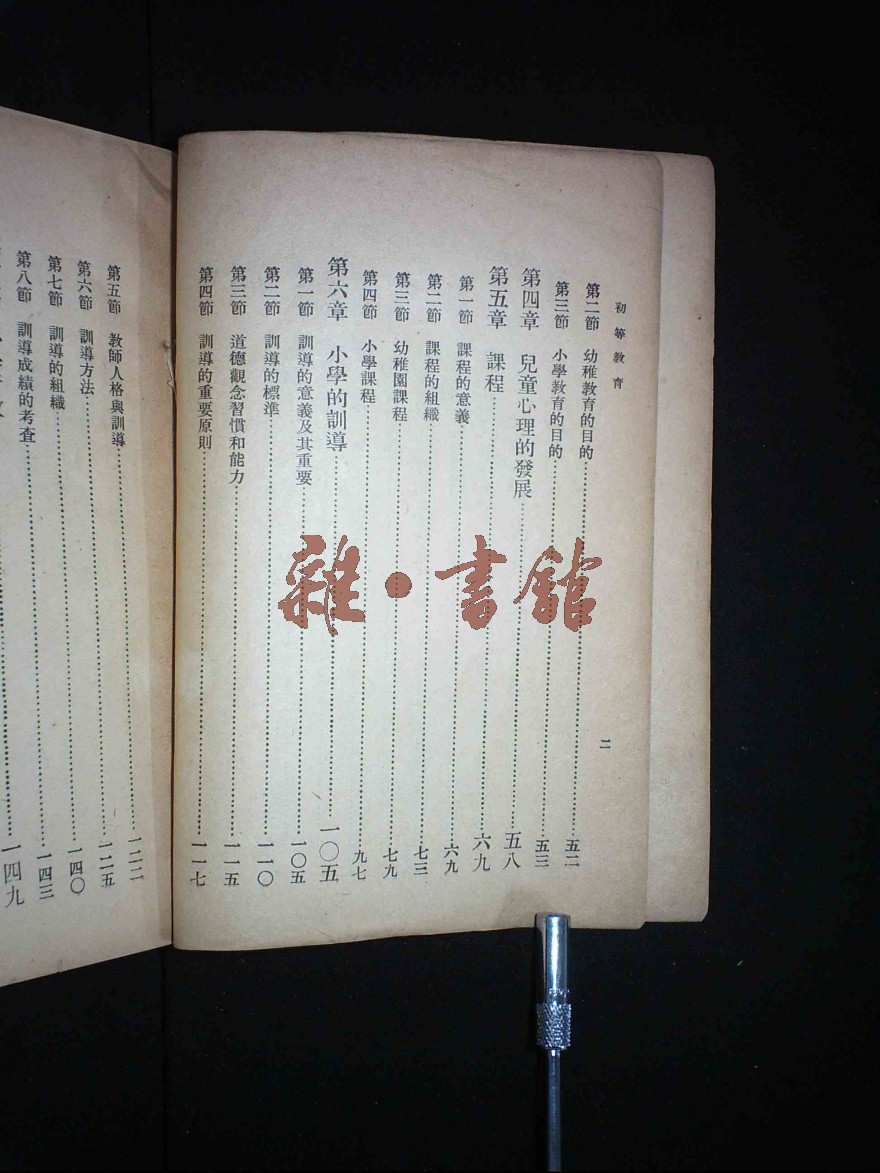 初等教育
二
第二節 幼稚教育的目的……五二
第三節 小學教育的目的……五三
第四章 兒童心理的發展……五八
第五章 課程……六九
第一節 課程的意義……六九
第二節 課程的組織……七三
第三節 幼稚園課程……七九
第四節 小學課程……九七
第六章 小學的訓導……一〇五
第一節 訓導的意義及其重要……一〇五
第二節 訓導的標準……一一〇
第三節 道德觀念習慣和能力……一一五
第四節 訓導的重要原則……一一七
第五節 教師人格與訓導……一二二
第六節 訓導方法……一二五
第七節 訓導的組織……一四〇
第八節 訓導成績的考查……一四三
一四九
雜·書館